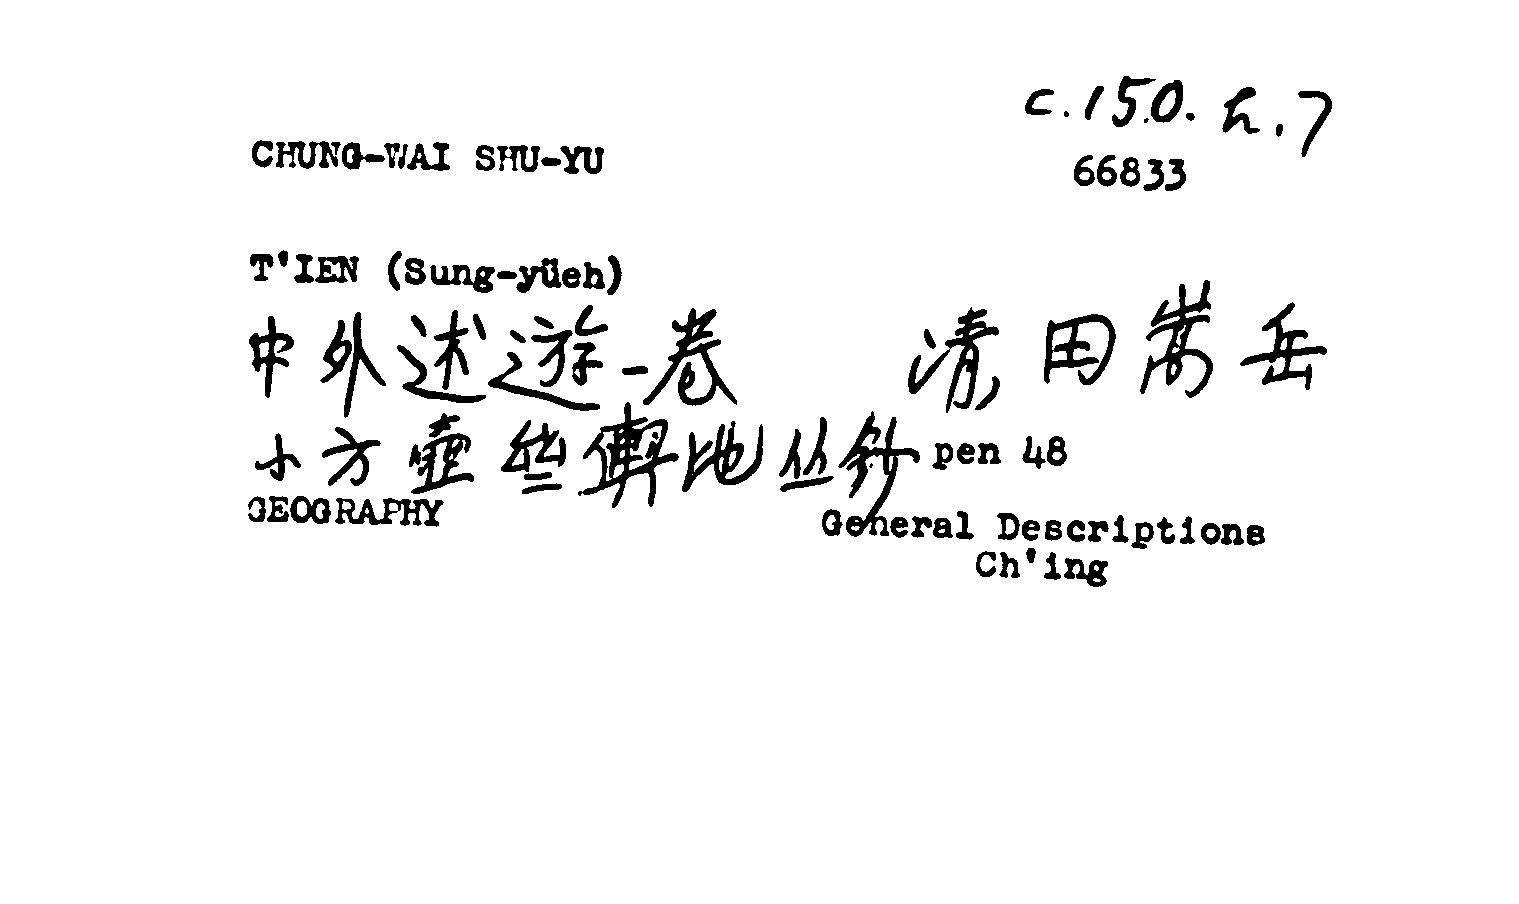 c.150.h.7
CHUNG-WAI SHU-YU
66833
T'IEN (Sung-yüeh)
中外述遊一卷 清田嵩岳
小方壺齋輿地丛鈔 pen 48
GEOGRAPHY General Descriptions
Ch'ing